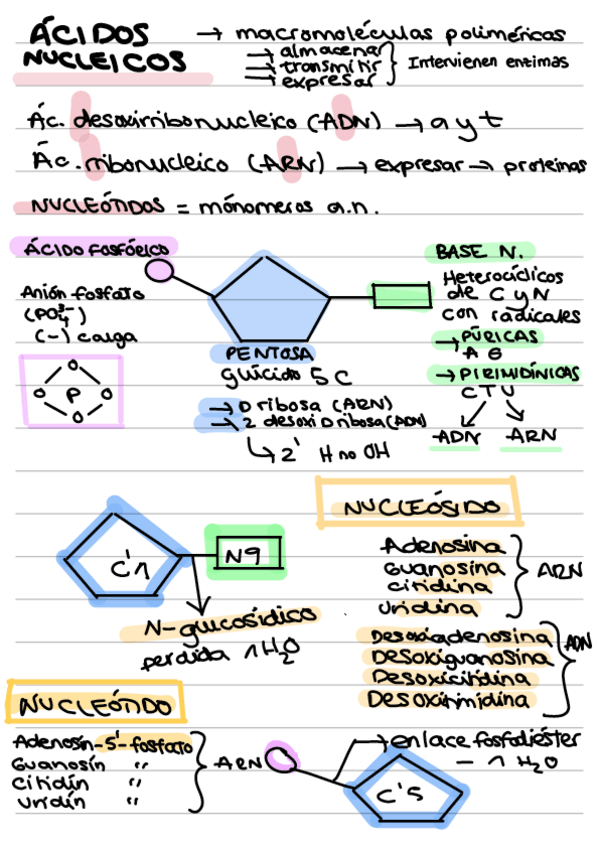 ÁCIDOS NUCLEICOS
→ macromoléculas poliméricas
→ almacenar
→ transmitir
→ expresar
} Intervienen enzimas
Ác. desoxirribonucleico (ADN) → a y t
Ác. rribonucleico (ARN) → expresar → proteinas
NUCLEÓTIDOS = mónomeros a.n.
ÁCIDO FOSFÓRICO
Anión fosfato
(PO₄³⁻)
(-) carga
O
O P O
O
PENTOSA
glúcido 5 C
→ D ribosa (ARN)
→ 2 desoxi D ribosa (ADN)
↳ 2' H no OH
BASE N.
Heterocíclicos
de C y N
con radicales
→ PÚRICAS
A G
→ PIRIMIDÍNICAS
C T U
ADN ARN
C'1
N9
N-glucosídico
perdida 1 H₂O
NUCLEÓSIDO
Adenosina
Guanosina
Citidina
Uridina
} ARN
Desoxiadenosina
Desoxiguanosina
Desoxicitidina
Desoxitimidina
} ADN
NUCLEÓTIDO
Adenosín-5'-fosfato
Guanosín "
Citidín "
Uridín "
} ARN
→ enlace fosfodiéster
- 1 H₂O
C'5